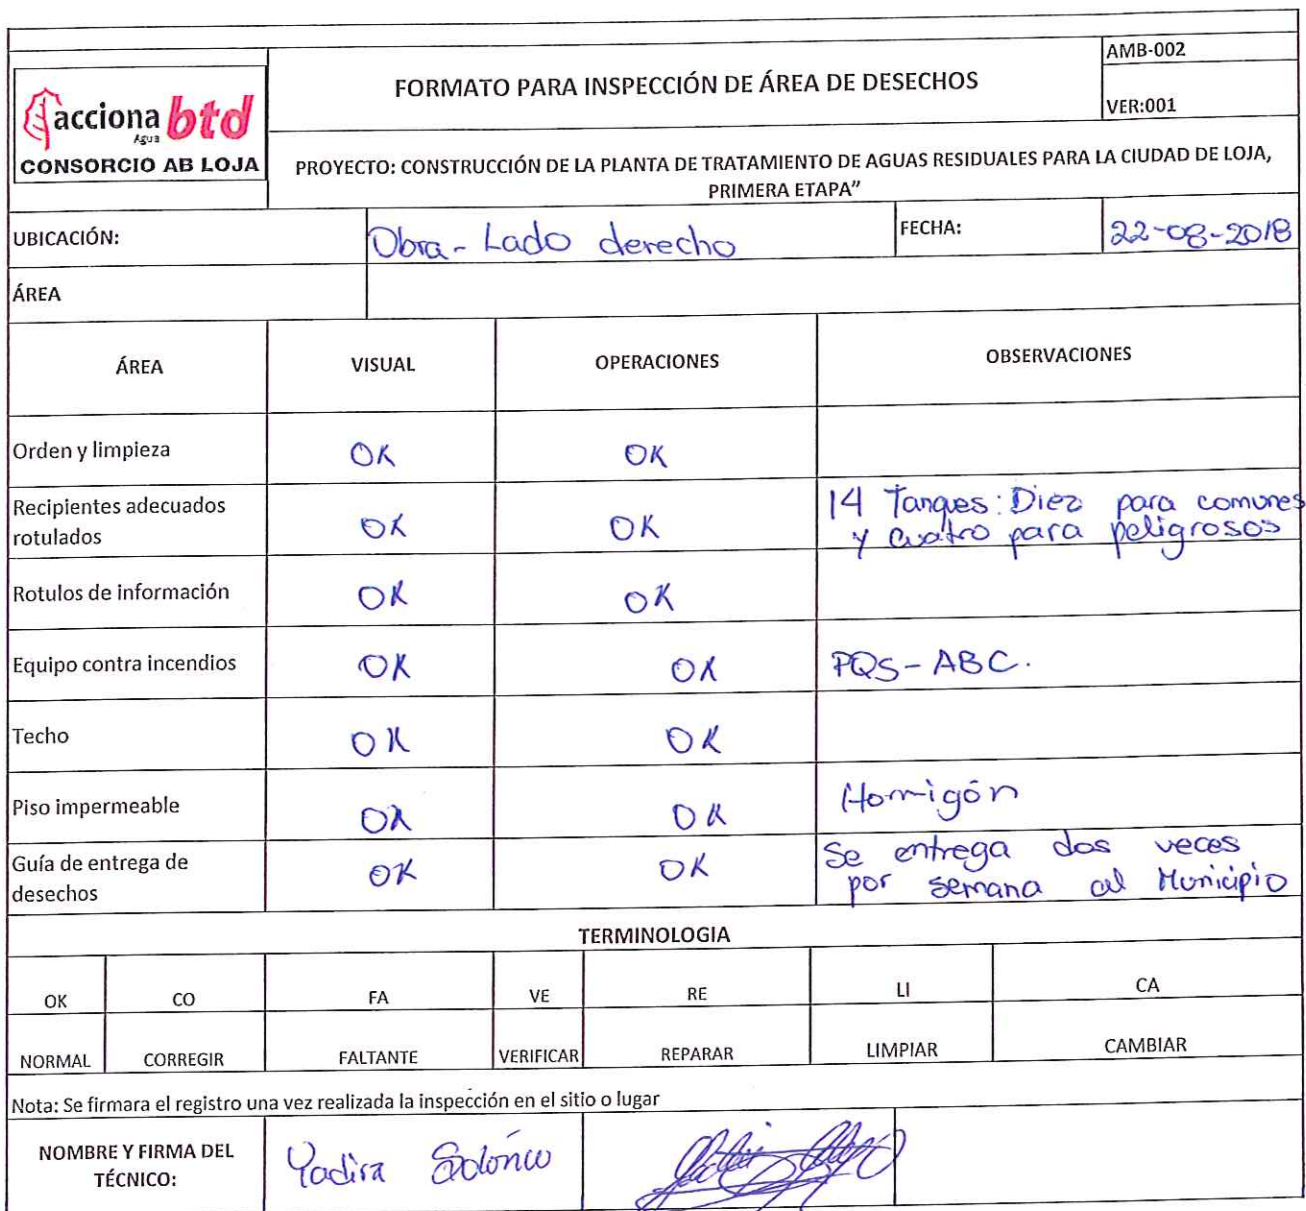 acciona btd
Agua
CONSORCIO AB LOJA
FORMATO PARA INSPECCIÓN DE ÁREA DE DESECHOS
AMB-002
VER:001
PROYECTO: CONSTRUCCIÓN DE LA PLANTA DE TRATAMIENTO DE AGUAS RESIDUALES PARA LA CIUDAD DE LOJA,
PRIMERA ETAPA”
UBICACIÓN: Obra - Lado derecho FECHA: 22-08-2018
ÁREA
ÁREA VISUAL OPERACIONES OBSERVACIONES
Orden y limpieza OK OK
Recipientes adecuados
rotulados OK OK
14 Tanques: Diez para comunes
y cuatro para peligrosos
Rotulos de información OK OK
Equipo contra incendios OK OK PQS - ABC.
Techo OK OK
Piso impermeable OK OK Hormigón
Guía de entrega de
desechos OK OK
Se entrega dos veces
por semana al Municipio
TERMINOLOGIA
OK CO FA VE RE LI CA
NORMAL CORREGIR FALTANTE VERIFICAR REPARAR LIMPIAR CAMBIAR
Nota: Se firmara el registro una vez realizada la inspección en el sitio o lugar
NOMBRE Y FIRMA DEL
TÉCNICO:
Yadira